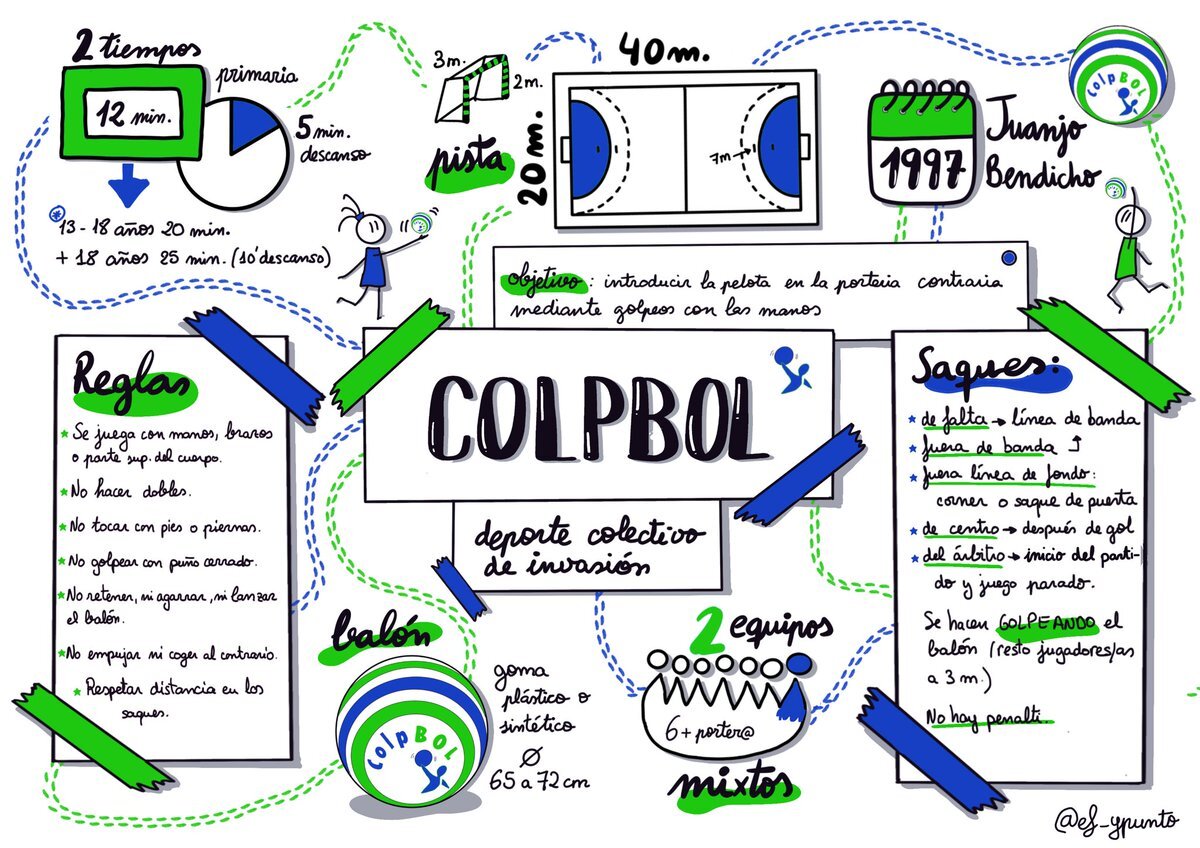 2 tiempos
12 min.
primaria
5 min.
descanso
13 - 18 años 20 min.
+ 18 años 25 min. (10' descanso)
3m.
2m.
pista
40 m.
20 m.
7m
1997
Juanjo
Bendicho
ColpBOL
objetivo: introducir la pelota en la porteria contraria
mediante golpeos con las manos
COLPBOL
deporte colectivo
de invasión
Reglas
Se juega con manos, brazos
o parte sup. del cuerpo.
No hacer dobles.
No tocar con pies o piernas.
No golpear con puño cerrado.
No retener, ni agarrar, ni lanzar
el balón.
No empujar ni coger al contrario.
Respetar distancia en los
saques.
Saques:
de falta → línea de banda
fuera de banda ⤴
fuera línea de fondo:
corner o saque de puerta
de centro → después de gol
del árbitro → inicio del parti-
do y juego parado.
Se hacen GOLPEANDO el
balón (resto jugadores/as
a 3 m.)
No hay penalti.
balón
ColpBOL
goma
plástico o
sintético
Ø
65 a 72 cm
2 equipos
6 + porter@
mixtos
@ef_ypunto